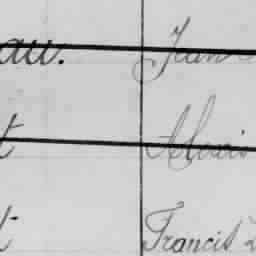 au. Jean
t Alouis
t Francis